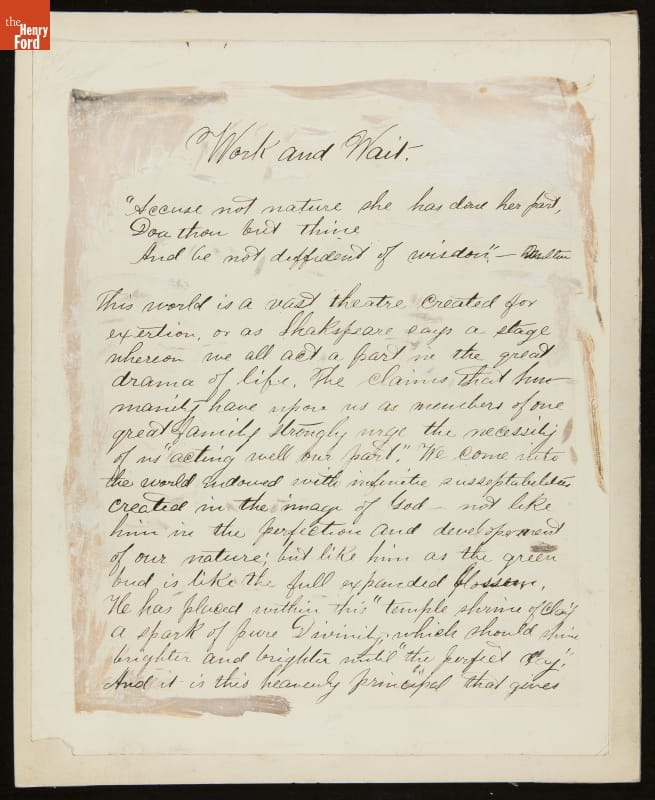 the
Henry
Ford
Work and Wait.
"Accuse not nature she has done her part,
Doa thou but thine
And be not diffident of wisdom". — Milton
This world is a vast theatre created for
exertion, or as Shakspeare says a stage
whereon we all act a part in the great
drama of life. The claims that hu-
manity have upon us as members of one
great family strongly urge the necessity
of us "acting well our part". We come into
the world indowed with infinite susseptabilities
created in the image of God – not like
him in the perfection and developement
of our nature; but like him as the green
bud is like the full expanded blossom.
He has placed within this "temple shrine of clay"
a spark of pure Divinity, which should shine
brighter and brighter until "the perfect day";
And it is this heavenly principal that gives